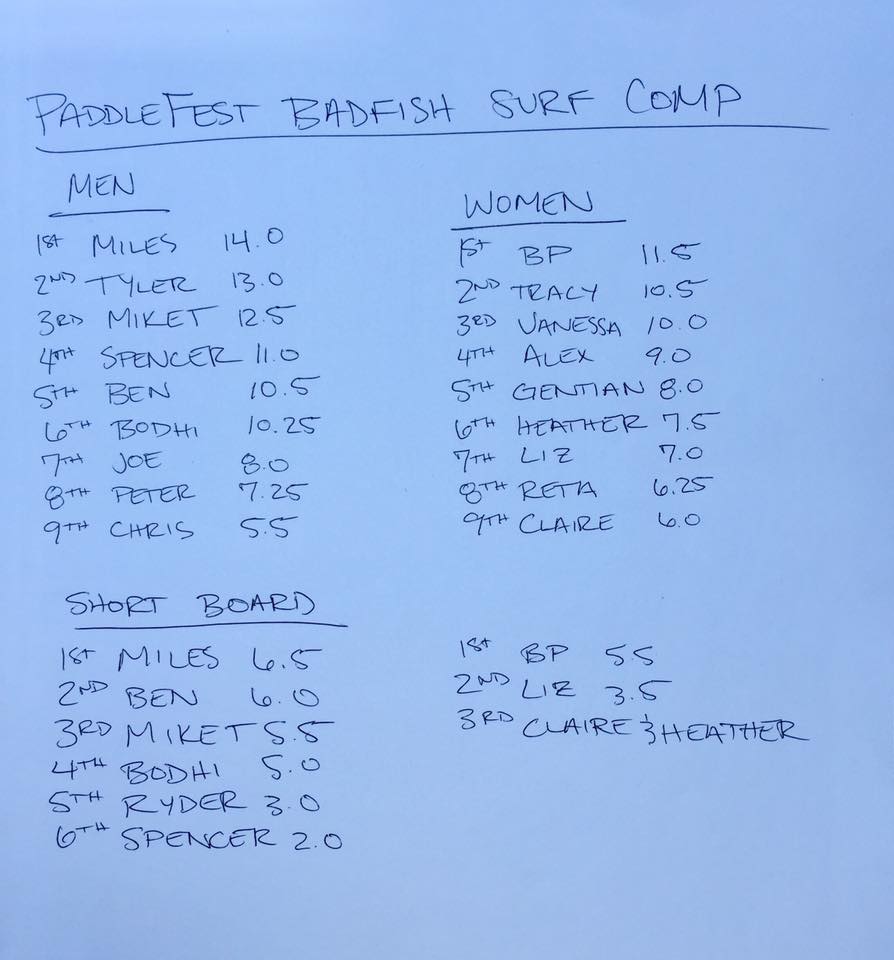 PADDLEFEST BADFISH SURF COMP
MEN
1ST MILES 14.0
2ND TYLER 13.0
3RD MIKET 12.5
4TH SPENCER 11.0
5TH BEN 10.5
6TH BODHI 10.25
7TH JOE 8.0
8TH PETER 7.25
9TH CHRIS 5.5
WOMEN
1ST BP 11.5
2ND TRACY 10.5
3RD VANESSA 10.0
4TH ALEX 9.0
5TH GENTIAN 8.0
6TH HEATHER 7.5
7TH LIZ 7.0
8TH RETA 6.25
9TH CLAIRE 6.0
SHORT BOARD
1ST MILES 6.5
2ND BEN 6.0
3RD MIKET 5.5
4TH BODHI 5.0
5TH RYDER 3.0
6TH SPENCER 2.0
1ST BP 5.5
2ND LIZ 3.5
3RD CLAIRE & HEATHER